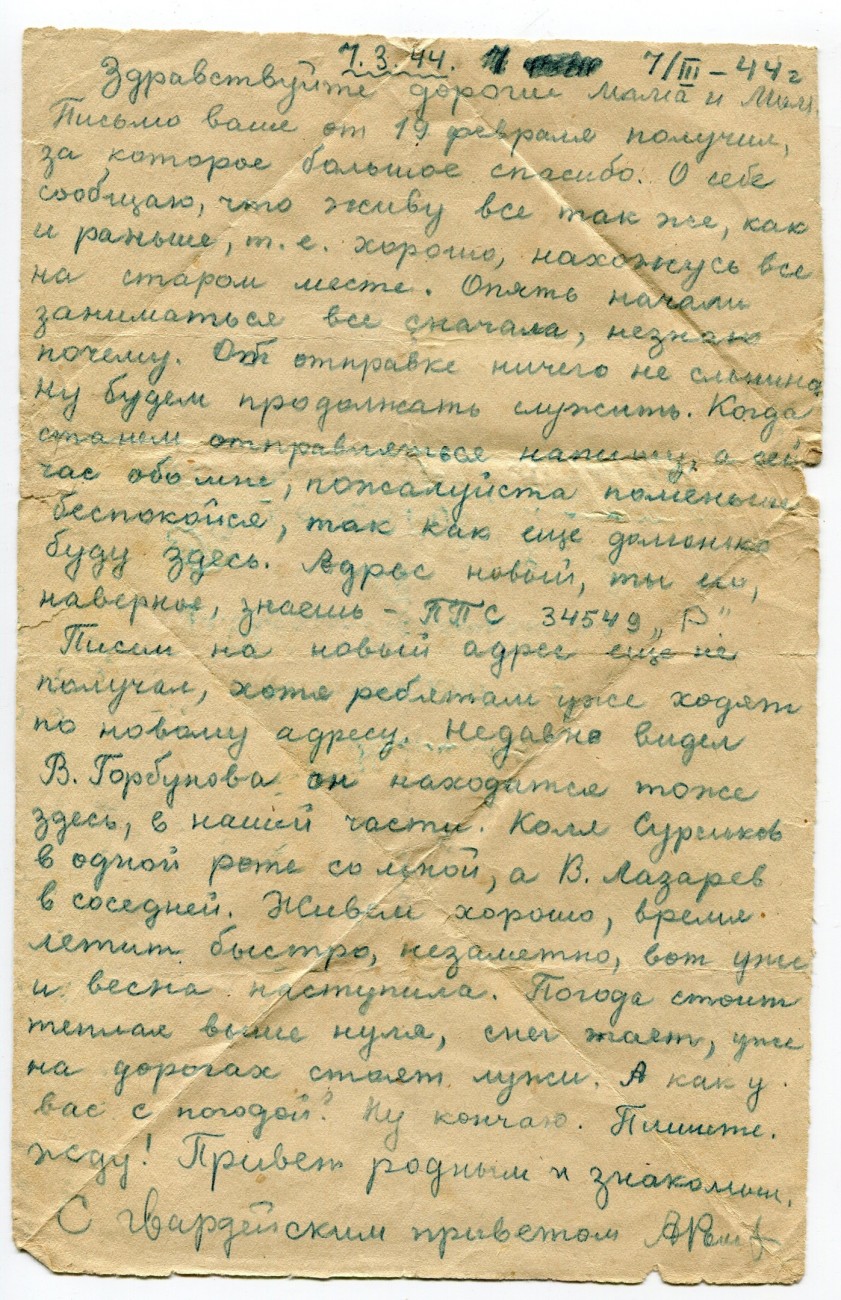 7.3.44. 7/III-44г
Здравствуйте дорогие мама и
Письмо ваше от 19 февраля получил,
за которое большое спасибо. О себе
сообщаю, что живу все так же, как
и раньше, т.е. хорошо, нахожусь все
на старом месте. Опять начали
заниматься все сначала, незнаю
почему. Об отправке ничего не слышно
Ну будем продолжать служить. Когда
станем отправляться напишу, а сей
час обо мне, пожалуйста поменьше
беспокойся, так как еще долгонько
буду здесь. Адрес новый, ты его,
наверное, знаешь - ППС 34549 „Р"
Писем на новый адрес еще не
получал, хотя ребятам уже ходят
по новому адресу. Недавно видел
В. Горбунова он находится тоже
здесь, в нашей части. Коля
в одной роте со мной, а В. Лазарев
в соседней. Живем хорошо, время
летит быстро, незаметно, вот уже
и весна наступила. Погода стоит
теплая выше нуля, снег тает, уже
на дорогах стоят лужи. А как у
вас с погодой? Ну кончаю. Пишите.
жду! Привет родным и знакомым.
С гвардейским приветом